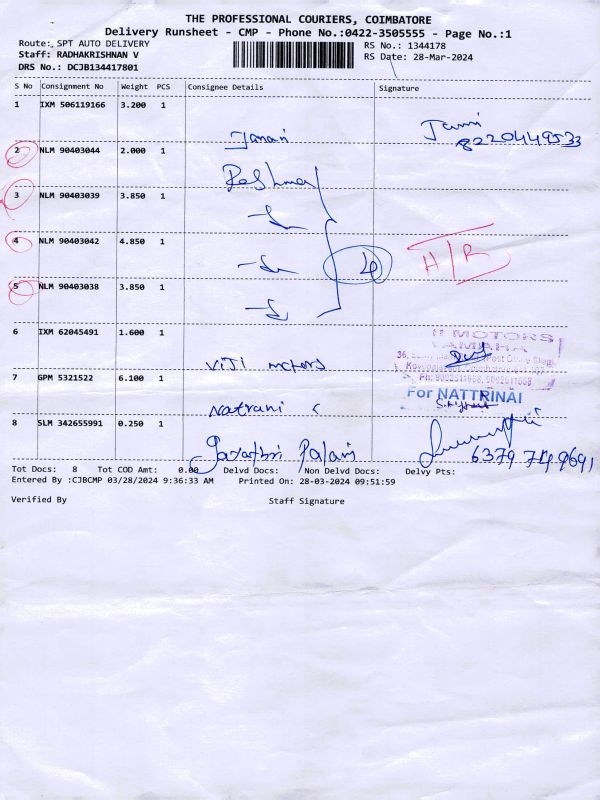 THE PROFESSIONAL COURIERS, COIMBATORE
Delivery Runsheet - CMP - Phone No.:0422-3505555 - Page No.:1
Route: SPT AUTO DELIVERY
RS No.: 1344178
Staff: RADHAKRISHNAN V
RS Date: 28-Mar-2024
DRS No.: DCJB134417801
S No Consignment No Weight PCS Consignee Details Signature
1 IXM 506119166 3.200 1
Janani
8220449533
2 NLM 90403044 2.000 1
Reshma
3 NLM 90403039 3.850 1
4 NLM 90403042 4.850 1
4 H/R
5 NLM 90403038 3.850 1
6 IXM 62045491 1.600 1
MOTORS
YAMAHA
viji motors
7 GPM 5321522 6.100 1
For NATTRINAI
8 SLM 342655991 0.250 1
6379749691
Tot Docs: 8 Tot COD Amt: 0.00 Delvd Docs: Non Delvd Docs: Delvy Pts:
Entered By :CJBCMP 03/28/2024 9:36:33 AM Printed On: 28-03-2024 09:51:59
Verified By Staff Signature